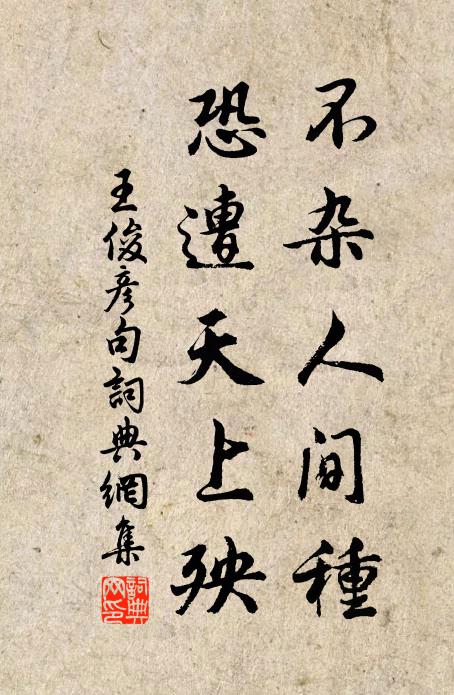 不杂人间種
恐遭天上殃
王俊彦句詞典網集
詞典网印